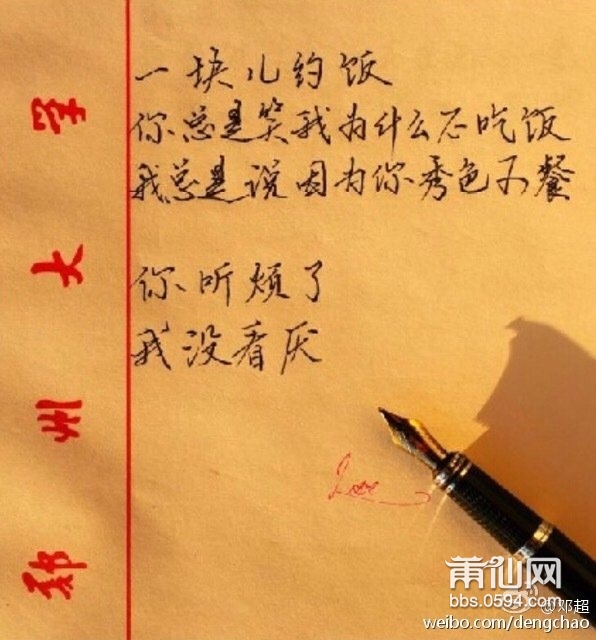 郑州大学
一块儿约饭
你总是笑我为什么不吃饭
我总是说因为你秀色可餐
你听烦了
我没看厌
莆仙网
bbs.0594.com
@邓超
weibo.com/dengchao